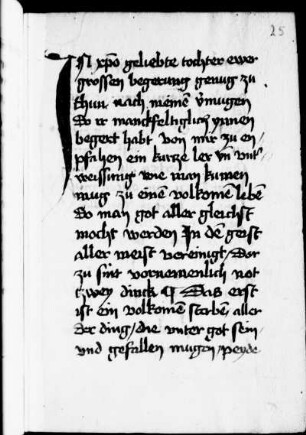 25
In xpo geliebte tochter ewer
grossen begerung genug zu
thun nach meinem vmugen
do ir manckfeltiglich ynnen
begert habt von mir zu en
pfahen ein kurze ler vn vnt
weissung wie man kumen
mug zu einem volkomē lebē
do man got aller gleichst
mocht werden In dē geist
aller meist vereinigt / dor
zu sint vornemenlich not
tzwey dinck ¶ Das erst
ist ein volkomē sterbē aller
der ding / die vnter got sein
vnd gefallen mugen / peyde